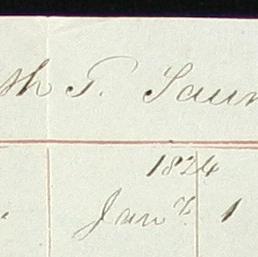 th T. Saun
1824
Jany. 1